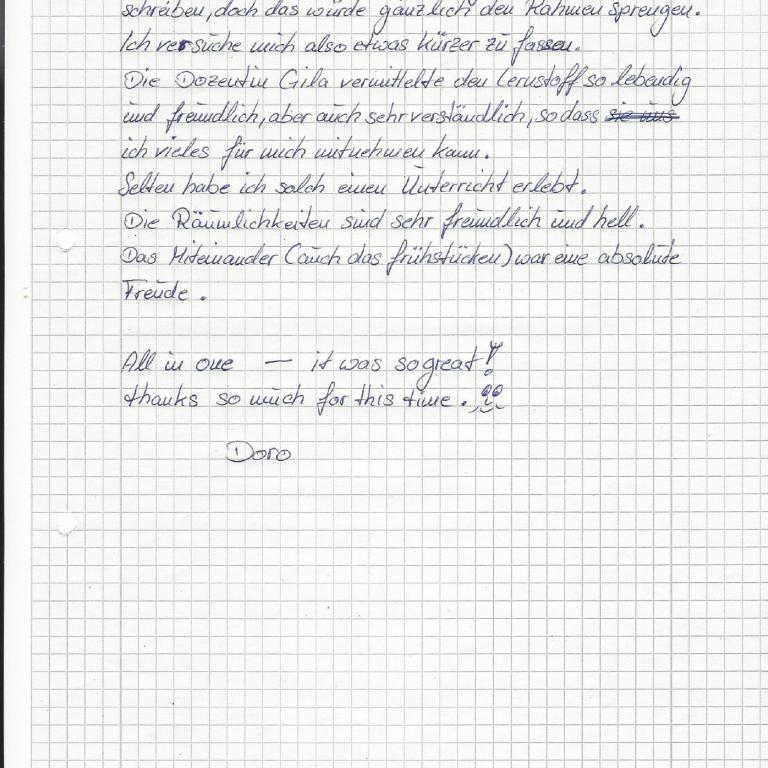 schreiben, doch das würde gänzlich den Rahmen sprengen.
Ich versuche mich also etwas kürzer zu fassen.
Die Dozentin Gila vermittelte den Lernstoff so lebendig
und freundlich, aber auch sehr verständlich, so dass sie uns
ich vieles für mich mitnehmen kann.
Selten habe ich solch einen Unterricht erlebt.
Die Räumlichkeiten sind sehr freundlich und hell.
Das Miteinander (auch das frühstücken) war eine absolute
Freude.
All in one — it was so great!
thanks so much for this time.
Doro